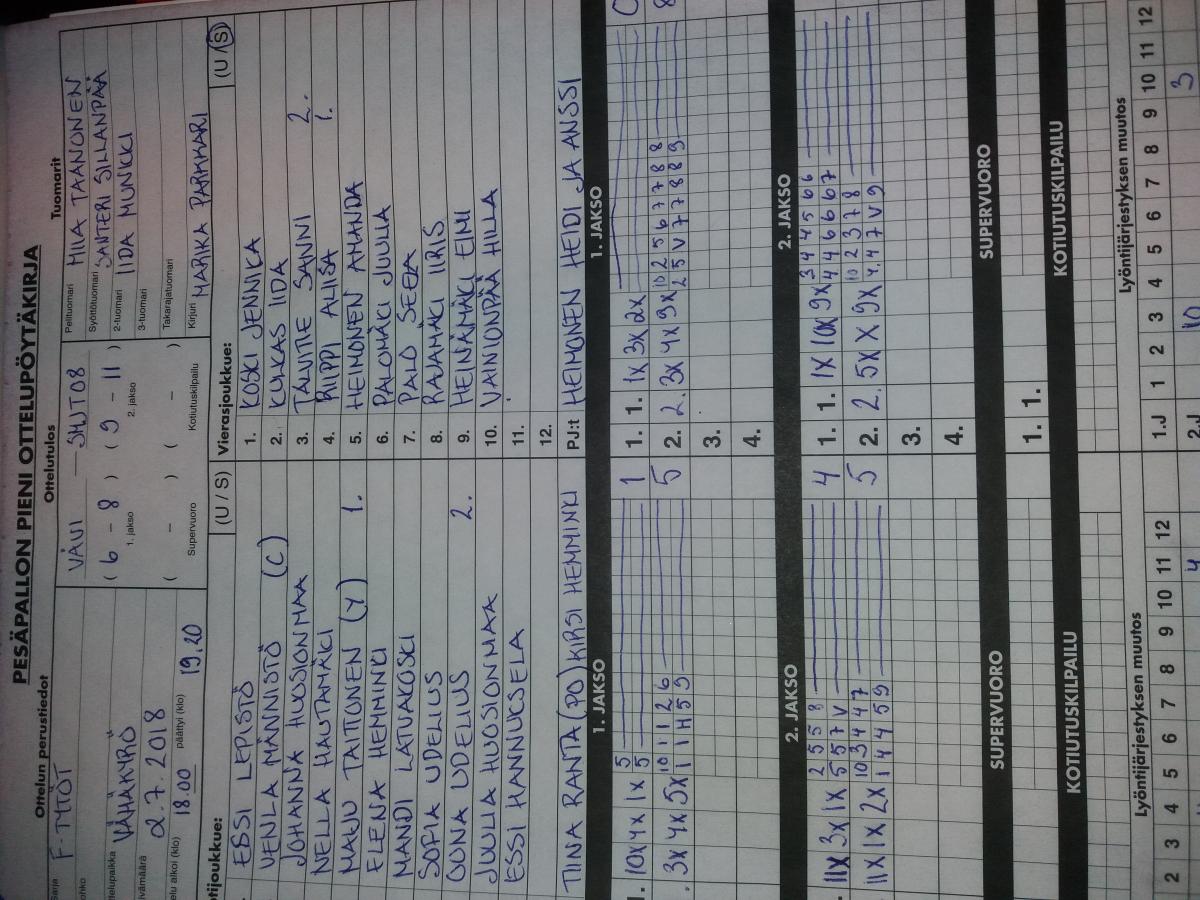 PESÄPALLON PIENI OTTELUPÖYTÄKIRJA
Ottelun perustiedot
F-TYTÖT
VÄHÄKYRÖ
2.7.2018
18.00 päättyi (klo) 19.20
Ottelutulos
VÄVI — SMJT08
( 6 – 8 ) ( 9 – 11 )
1. jakso 2. jakso
( – ) ( – )
Supervuoro Kotiutuskilpailu
Tuomarit
Pelituomari
Syöttötuomari SANTERI SILLANPÄÄ
2-tuomari IIDA MUNKKI
3-tuomari
Takarajatuomari
Kirjuri MARIKA PARKKARI
(U / S)
ESSI LEPISTÖ
VENLA MÄNNISTÖ (C)
JOHANNA HUOSIONMAA
NELLA HAUTAMÄKI
MAIJU TAITTONEN (Y) 1.
ELENA HEMMINKI
MANDI LATVAKOSKI
SOFIA UDELIUS
OONA UDELIUS 2.
JUULIA HUOSIONMAA
ESSI HANNUKSELA
TIINA RANTA (PO) KIRSI HEMMINKI
Vierasjoukkue: (U / S)
1. KOSKI JENNIKA
2. KUKKAS IIDA
3. TALVITIE SANNI 2.
4. RIIPPI ALIISA 1.
5. HEIMONEN AMANDA
6. PALOMÄKI JULIA
7. PALO SEEA
8. RAJAMÄKI IIRIS
9. HEINÄMÄKI EINI
10. VAINIONPÄÄ HILLA
11.
12.
PJ:t HEIMONEN HEIDI JA ANSSI
1. JAKSO
10x 4x 1x 5 5 1
3x 4x 5x 10 1 1 2 6 5
1. JAKSO
1. 1. 1x 3x 2x
2. 2. 3x 4x 9x 10 2 5 6 7 7 8 8
2 5 V 7 7 8 8 9
3.
4.
2. JAKSO
11x 3x 1x 2 5 5 8 4
5 5 7 V
11x 1x 2x 10 3 4 4 7 5
1 4 4 5 9
2. JAKSO
1. 1. 1x 10x 9x 3 4 4 5 6 6
4 4 6 6 6 7
2. 2. 5x X 9x 10 2 3 7 8
4 4 7 V 9
3.
4.
SUPERVUORO
SUPERVUORO
1. 1.
KOTIUTUSKILPAILU
KOTIUTUSKILPAILU
Lyöntijärjestyksen muutos
2 3 4 5 6 7 8 9 10 11 12
4
Lyöntijärjestyksen muutos
1.J 1 2 3 4 5 6 7 8 9 10 11 12
2.J 10 3